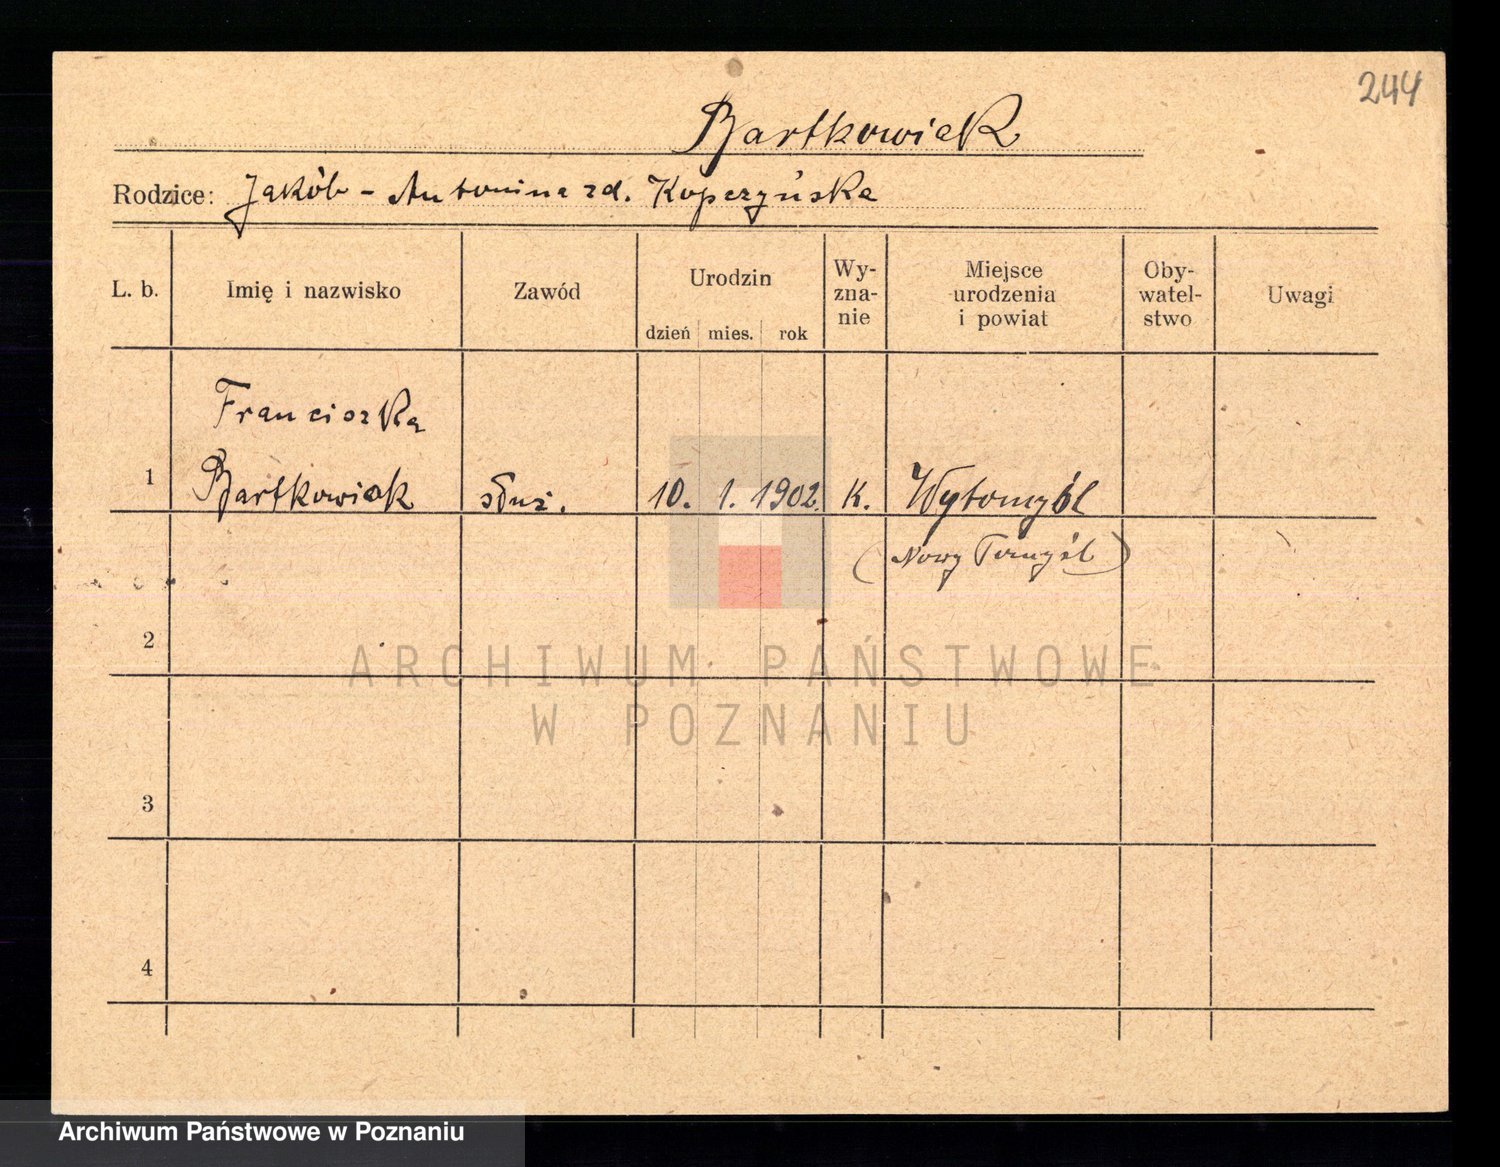 244
Bartkowiak
Rodzice: Jakób - Antonina zd. Kopczyńska
L. b.
Imię i nazwisko
Zawód
Urodzin
dzień mies. rok
Wy-
zna-
nie
Miejsce
urodzenia
i powiat
Oby-
watel-
stwo
Uwagi
Franciszka
1 Bartkowiak służ. 10. 1. 1902. K. Wytomyśl
(Nowy Tomyśl)
2
ARCHIWUM PAŃSTWOWE
W POZNANIU
3
4
Archiwum Państwowe w Poznaniu